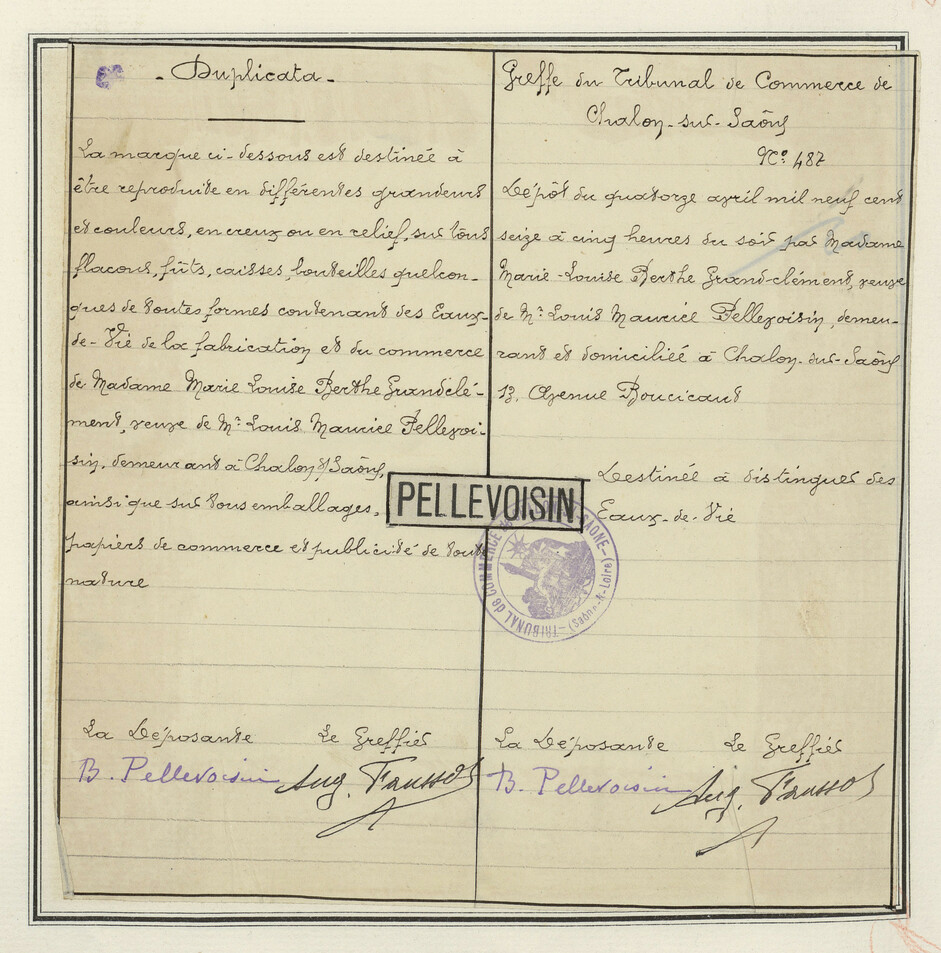 - Duplicata -
La marque ci-dessous est destinée à
être reproduite en différentes grandeurs
et couleurs, en creux ou en relief, sur tous
flacons, fûts, caisses, bouteilles quelcon-
ques de toutes formes contenant des Eaux-
de-Vie de la fabrication et du commerce
de Madame Marie Louise Berthe Grandclé-
ment, veuve de Mr Louis Maurice Pellevoi-
sin, demeurant à Chalon s/Saône,
ainsi que sur tous emballages,
papiers de commerce et publicité de toute
nature
La Déposante Le Greffier
B. Pellevoisin Aug.
Greffe du Tribunal de Commerce de
Chalon-sur-Saône
No 487
Dépôt du quatorze avril mil neuf cent
seize à cinq heures du soir par Madame
Marie-Louise Berthe Grand-clément, veuve
de Mr Louis Maurice Pellevoisin, demeu-
rant et domiciliée à Chalon-sur-Saône
13, Avenue Boucicaut
Destinée à distinguer des
Eaux-de-Vie
La Déposante Le Greffier
B. Pellevoisin Aug.
PELLEVOISIN
TRIBUNAL de COMMERCE de SAONE - (Saône-&-Loire)